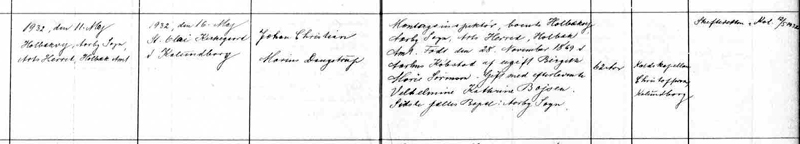 1932, den 11. Maj
Holbækvej, Aarby Sogn,
Arts Herred, Holbæk Amt
1932, den 16. Maj
St. Olai Kirkegaard
i Kalundborg
Johan Christian
Marius Dangstrup
boende Holbækvej
Aarby Sogn, Arts Herred, Holbæk
Amt. Født den 28. November 1869 i
Aarhus Købstad af ugift Birgitte
Marie Sørensen. Gift med efterlevende
Vilhelmine Kathrine Bojsen.
Sidste fælles Bopæl: Aarby Sogn.
Kaldskapellan
Christoffersen
Kalundborg
Skifteretten